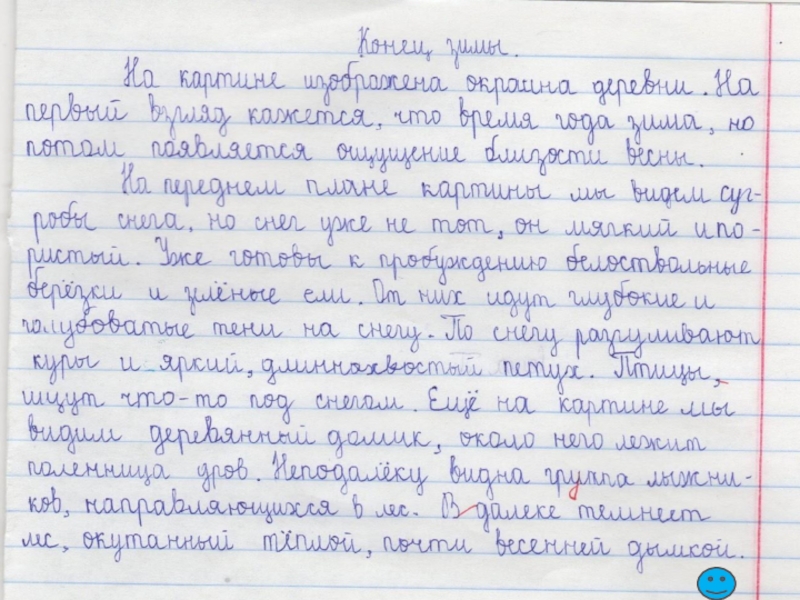 Конец зимы.
На картине изображена окраина деревни. На
первый взгляд кажется, что время года зима, но
потом появляется ощущение близости весны.
На переднем плане картины мы видем суг-
робы снега, но снег уже не тот, он мягкий и по-
ристый. Уже готовы к пробуждению белоствольные
берёзки и злёные ели. От них идут глубокие и
голубоватые тени на снегу. По снегу разгуливают
куры и яркий, длиннохвостый петух. Птицы,
ищут что-то под снегом. Ещё на картине мы
видим деревянный домик, около него лежит
поленница дров. Неподалёку видна группа лыжни-
ков, направляющихся в лес. В далеке темнеет
лес, окутанный тёплой, почти весенней дымкой.